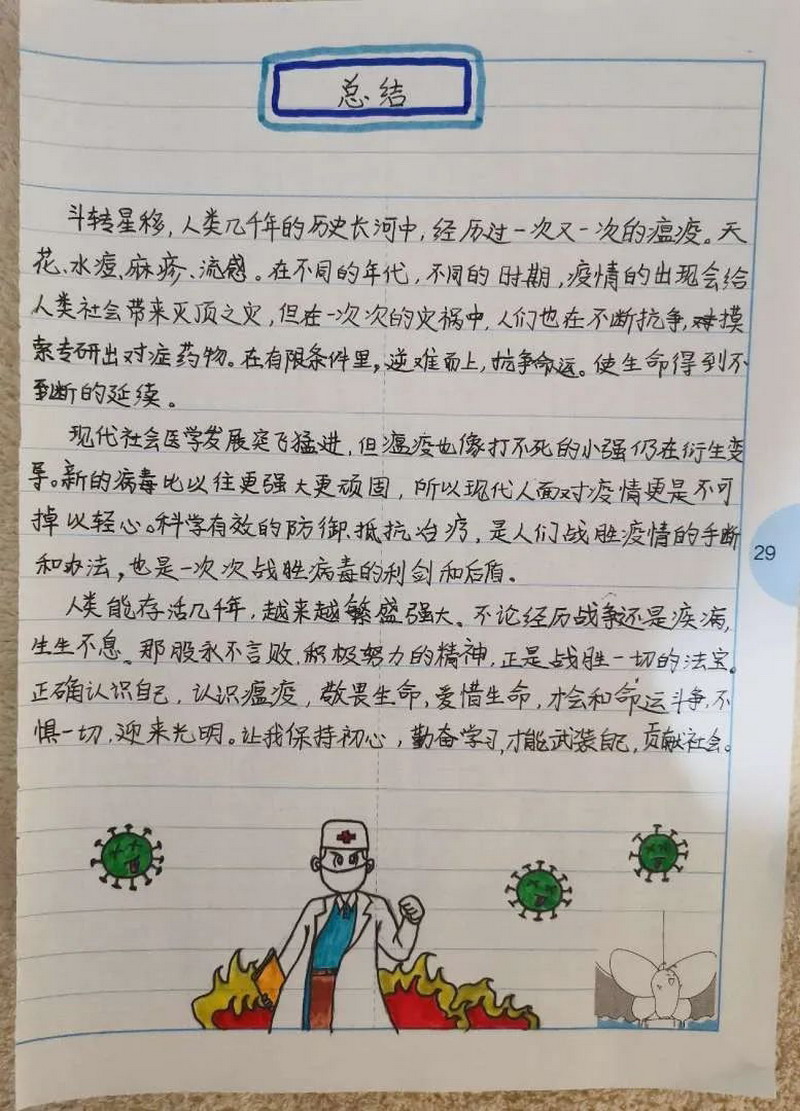 总结
斗转星移,人类几千年的历史长河中,经历过一次又一次的瘟疫。天
花、水痘、麻疹、流感。在不同的年代,不同的时期,疫情的出现会给
人类社会带来灭顶之灾,但在一次次的灾祸中,人们也在不断抗争,摸
索专研出对症药物。在有限条件里,逆难而上,抗争命运。使生命得到不
断的延续。
现代社会医学发展突飞猛进,但瘟疫也像打不死的小强仍在衍生变
异。新的病毒比以往更强大更顽固,所以现代人面对疫情更是不可
掉以轻心。科学有效的防御、抵抗、治疗,是人们战胜疫情的手断
和办法,也是一次次战胜病毒的利剑和后盾。
人类能存活几千年,越来越繁盛强大。不论经历战争还是疾病,
生生不息。那股永不言败,积极努力的精神,正是战胜一切的法宝。
正确认识自己,认识瘟疫,敬畏生命,爱惜生命,才会和命运斗争,不
惧一切,迎来光明。让我保持初心,勤奋学习,才能武装自己,贡献社会。
29